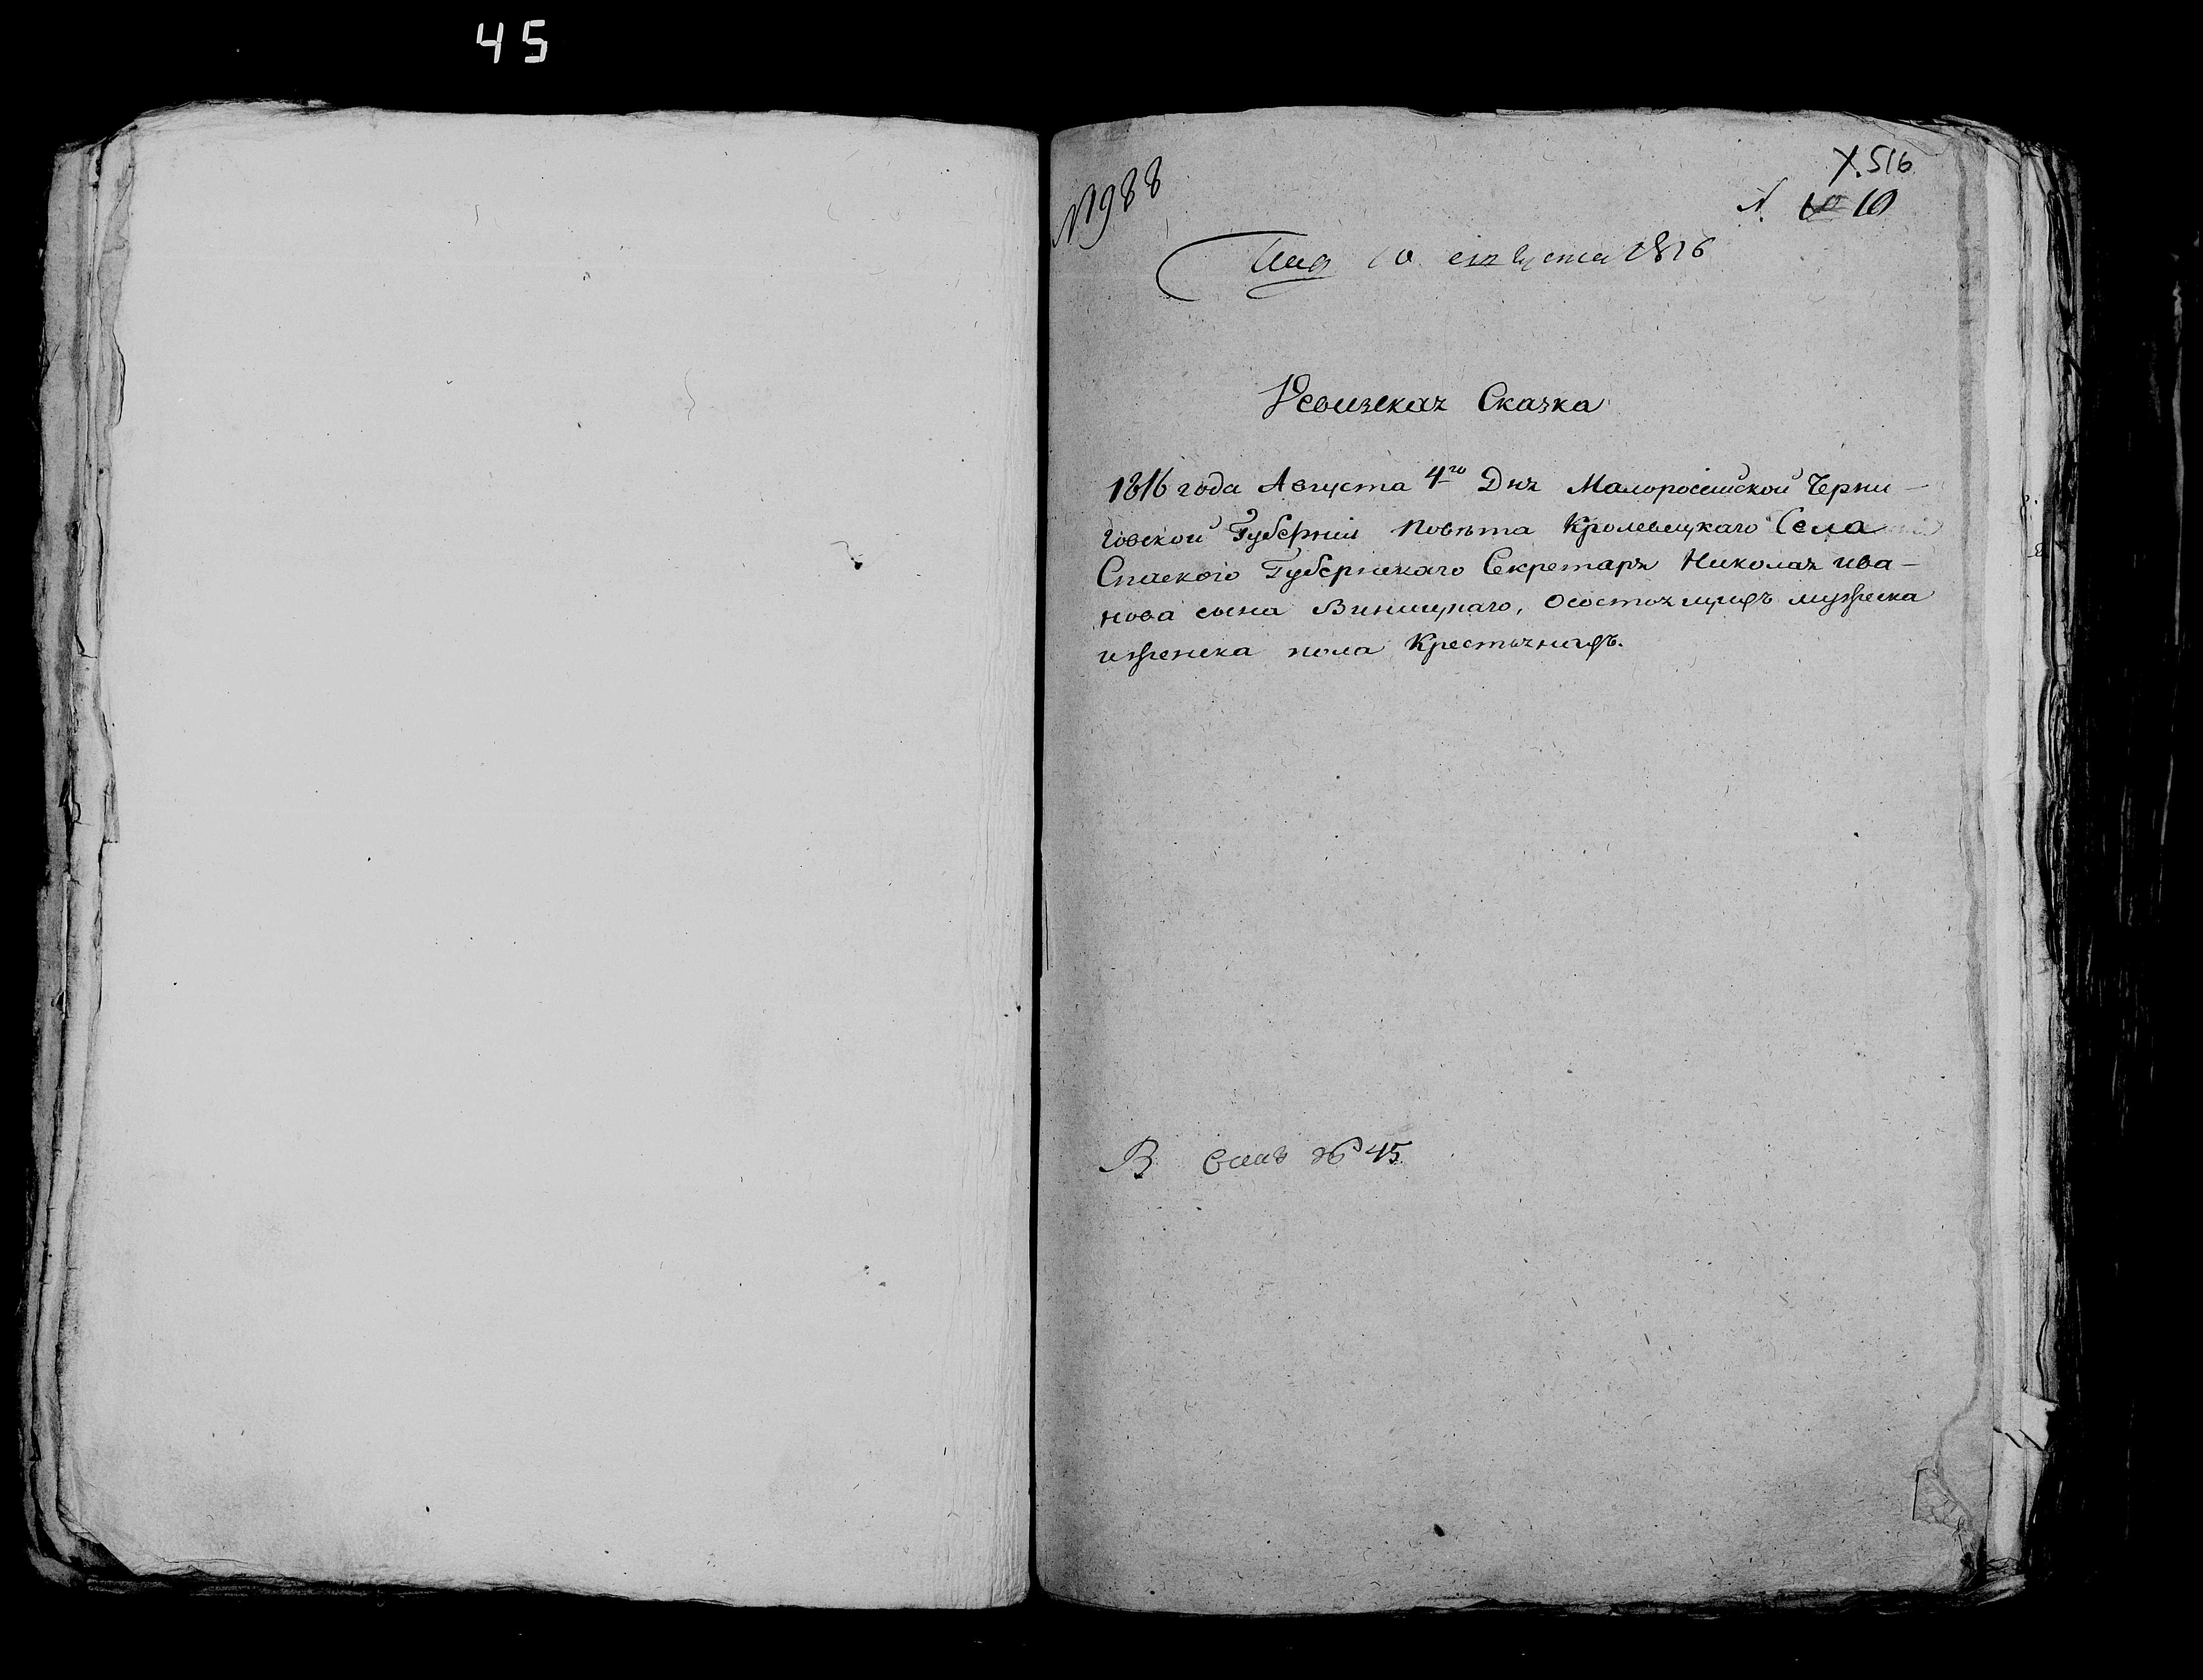 45
№ 988
X. 516
№ 10
10 августа 1816
Ревизская Сказка
1816 года Августа 4го Дня Малоросійской Черни-
говской Губерніи Повѣта Кролевецкаго Села
Спаского Губернскаго Секретаря Николая ива-
нова сына Виницкаго, Осостоящихъ мужеска
иженска пола Крестьянахъ.
В № 45